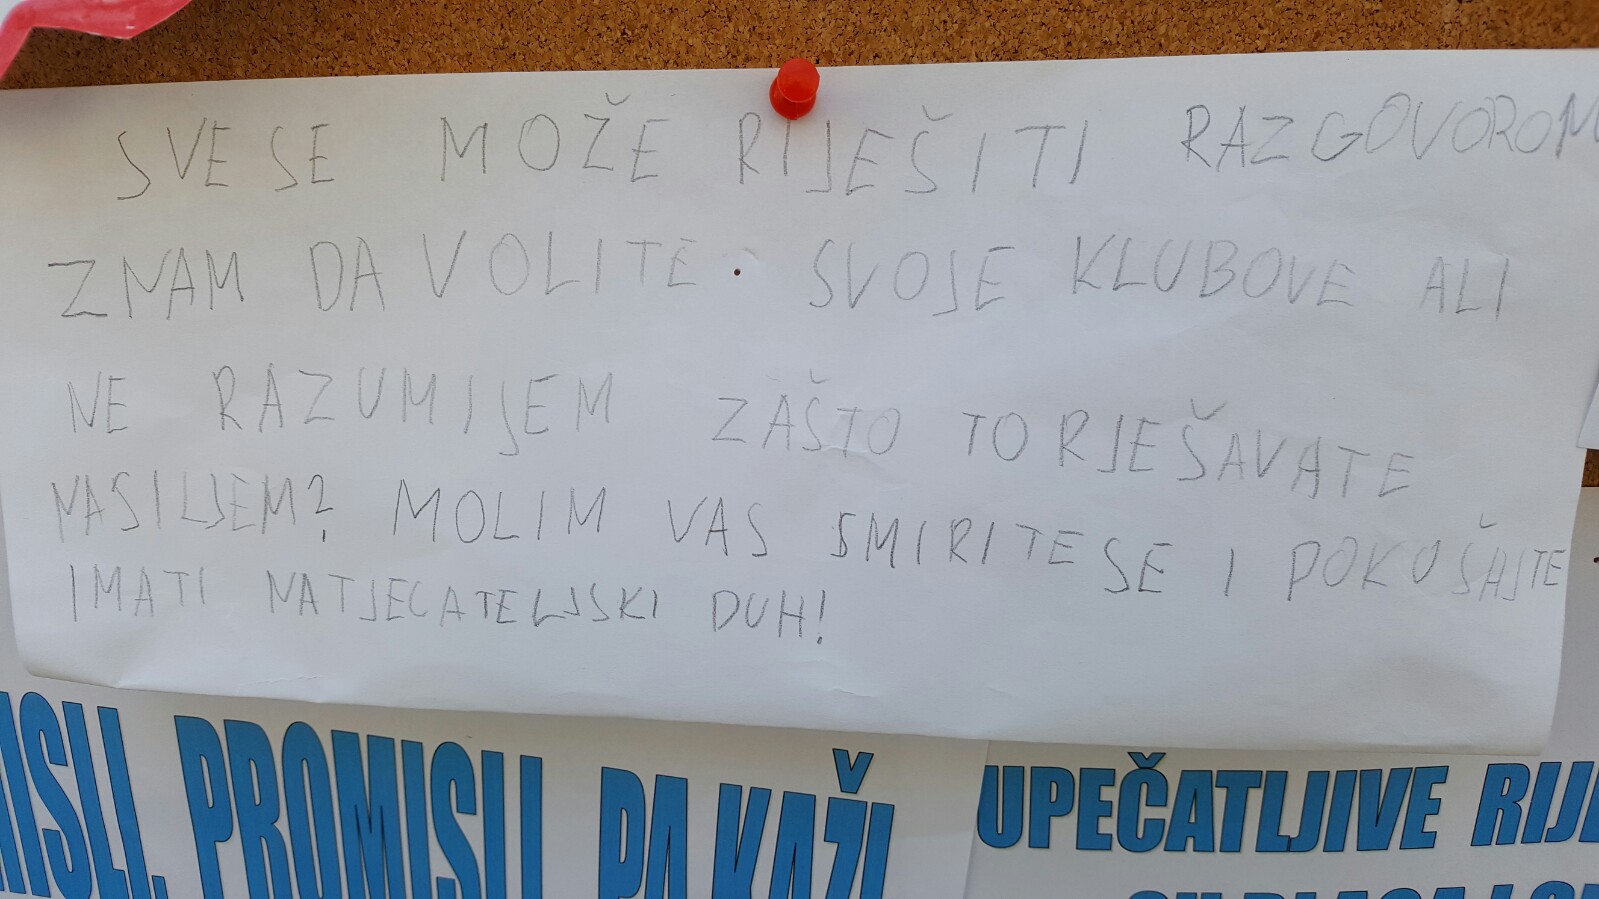 SVE SE MOŽE RIJEŠITI RAZGOVOROM
ZNAM DA VOLITE. SVOJE KLUBOVE ALI
NE RAZUMIJEM ZAŠTO TO RJEŠAVATE
NASILJEM? MOLIM VAS SMIRITE SE I POKUŠAJTE
IMATI NATJECATELJSKI DUH!
MISLI, PROMISLI, PA KAŽI
UPEČATLJIVE RIJE